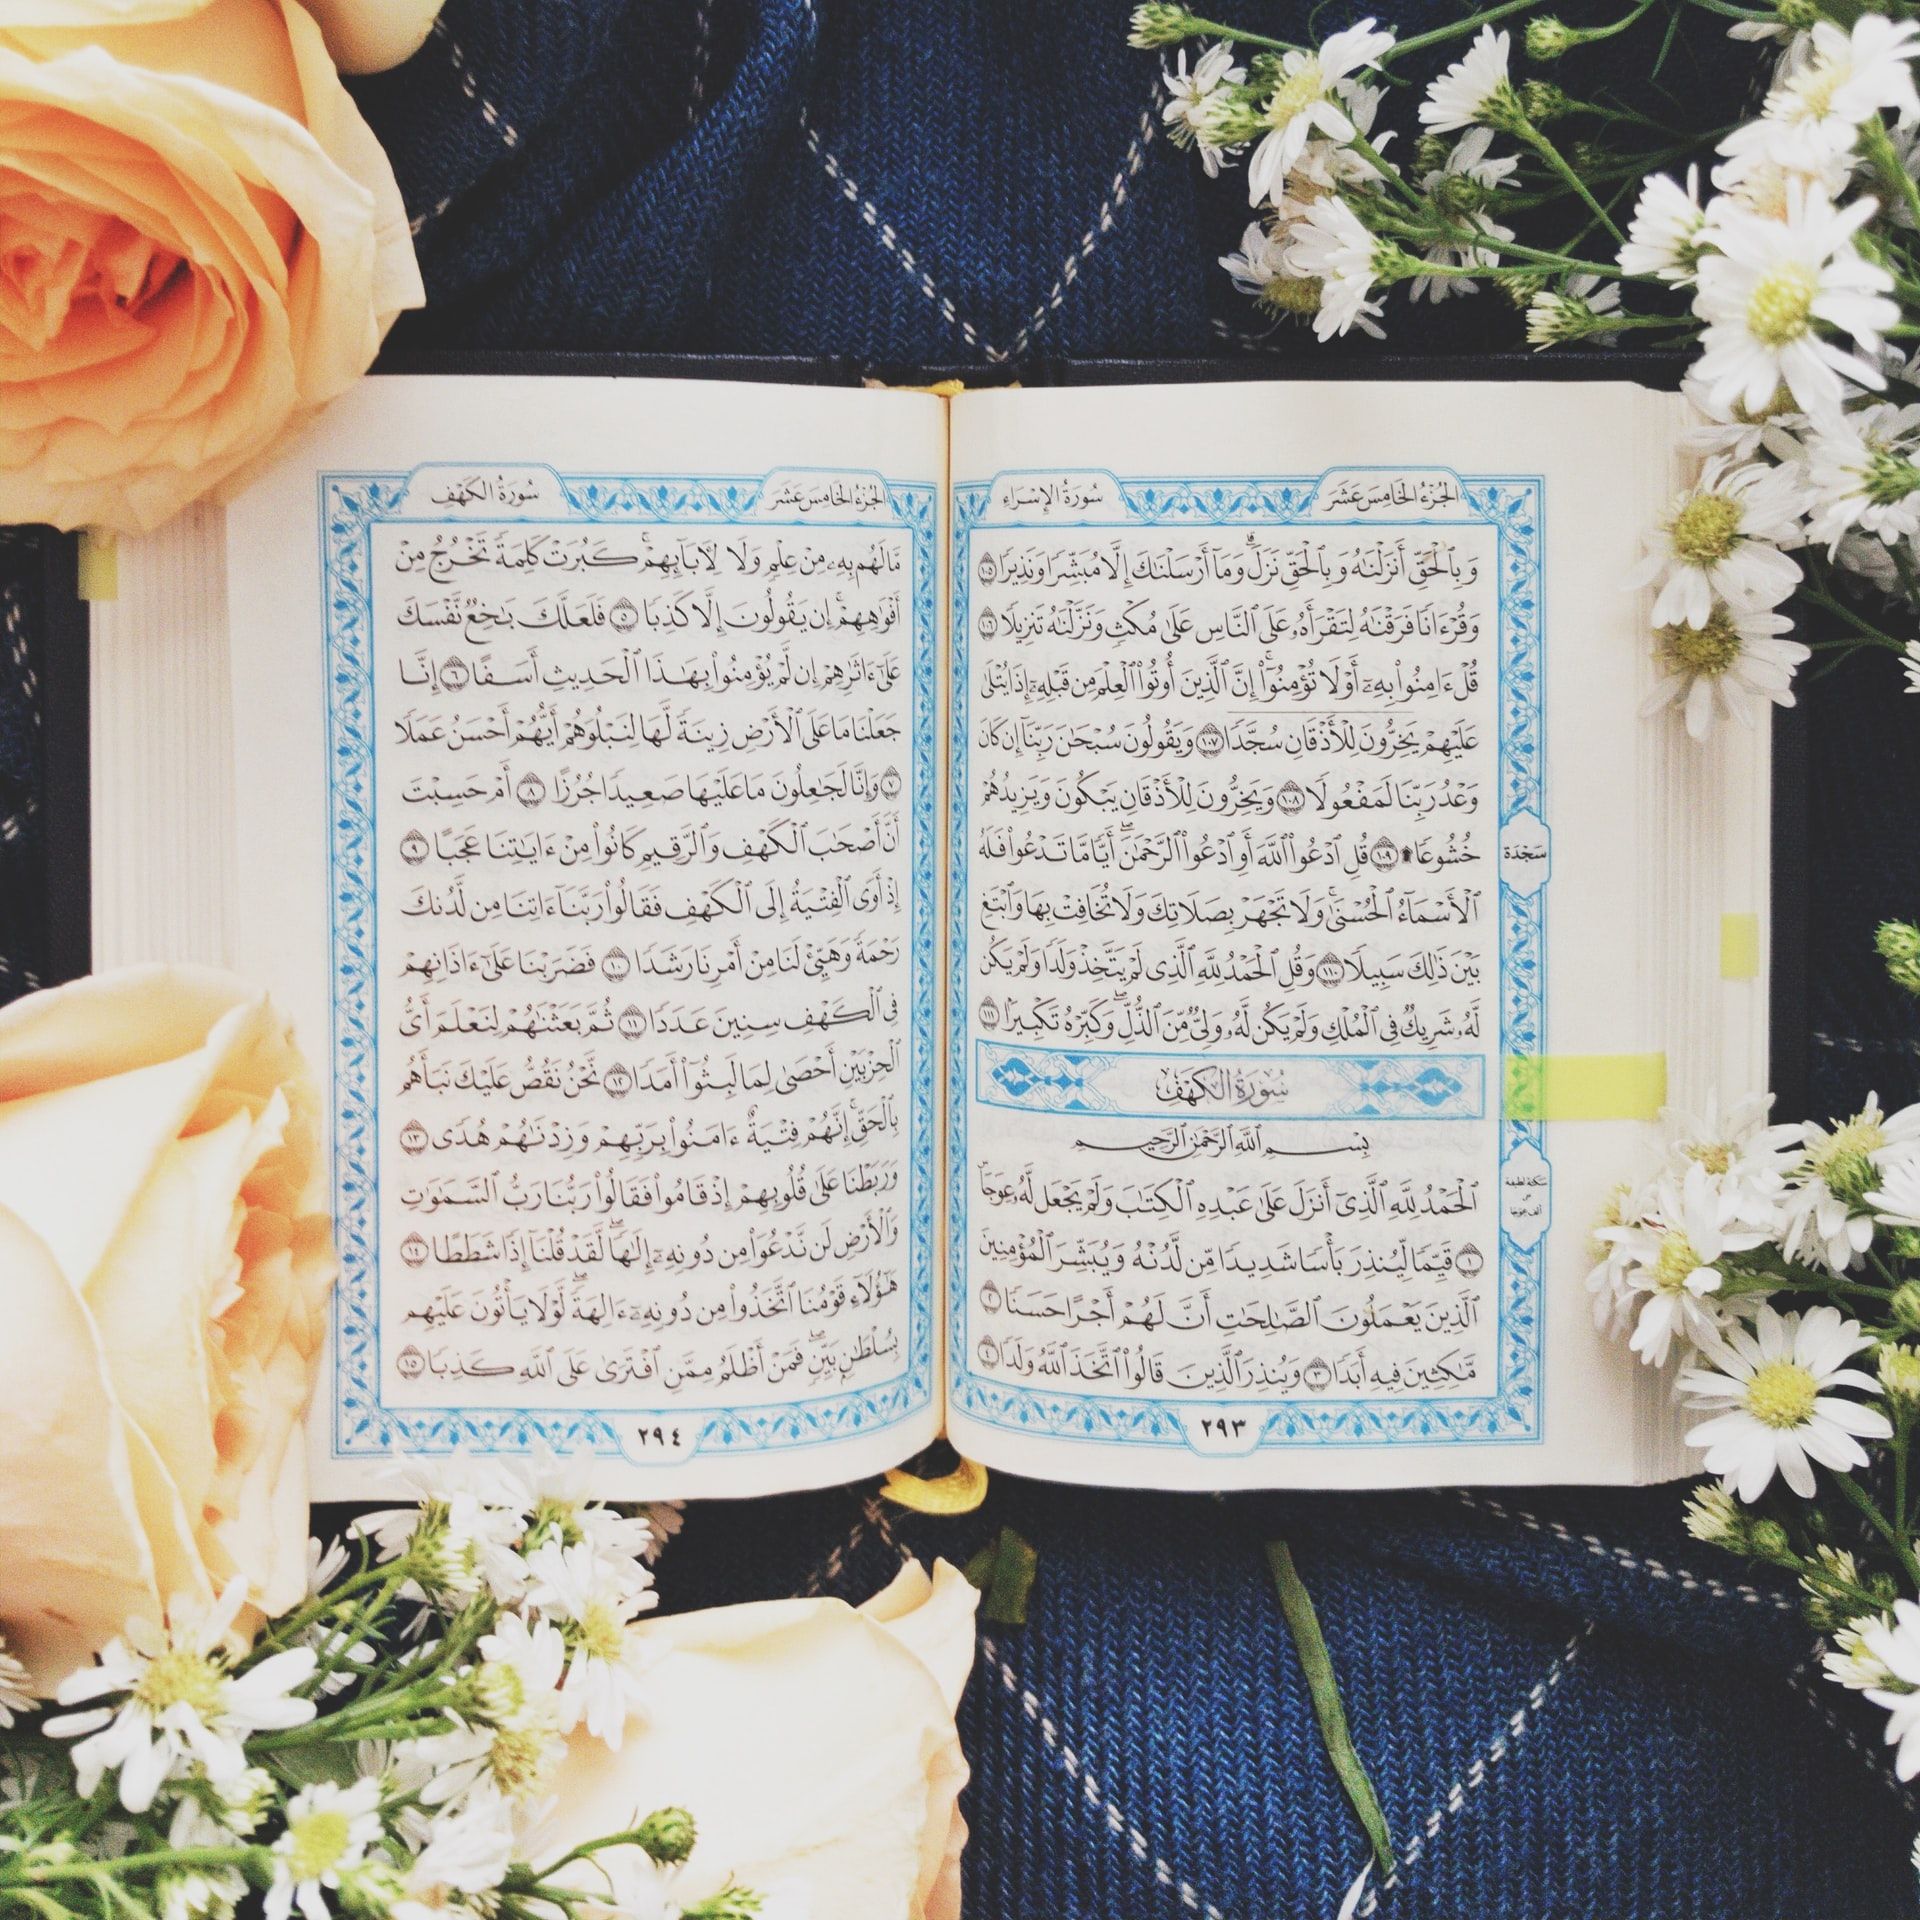 الجزء الخامس عشر
سورة الإسراء
وَبِٱلْحَقِّ أَنزَلْنَٰهُ وَبِٱلْحَقِّ نَزَلَ ۗ وَمَآ أَرْسَلْنَٰكَ إِلَّا مُبَشِّرًا وَنَذِيرًا ١٠٥
وَقُرْءَانًا فَرَقْنَٰهُ لِتَقْرَأَهُۥ عَلَى ٱلنَّاسِ عَلَىٰ مُكْثٍ وَنَزَّلْنَٰهُ تَنزِيلًا ١٠٦
قُلْ ءَامِنُوا۟ بِهِۦٓ أَوْ لَا تُؤْمِنُوٓا۟ ۚ إِنَّ ٱلَّذِينَ أُوتُوا۟ ٱلْعِلْمَ مِن قَبْلِهِۦٓ إِذَا يُتْلَىٰ
عَلَيْهِمْ يَخِرُّونَ لِلْأَذْقَانِ سُجَّدًا ١٠٧ وَيَقُولُونَ سُبْحَٰنَ رَبِّنَآ إِن كَانَ
وَعْدُ رَبِّنَا لَمَفْعُولًا ١٠٨ وَيَخِرُّونَ لِلْأَذْقَانِ يَبْكُونَ وَيَزِيدُهُمْ
خُشُوعًا ۩ ١٠٩ قُلِ ٱدْعُوا۟ ٱللَّهَ أَوِ ٱدْعُوا۟ ٱلرَّحْمَٰنَ ۖ أَيًّا مَّا تَدْعُوا۟ فَلَهُ
سَجْدَة
ٱلْأَسْمَآءُ ٱلْحُسْنَىٰ ۚ وَلَا تَجْهَرْ بِصَلَاتِكَ وَلَا تُخَافِتْ بِهَا وَٱبْتَغِ
بَيْنَ ذَٰلِكَ سَبِيلًا ١١٠ وَقُلِ ٱلْحَمْدُ لِلَّهِ ٱلَّذِى لَمْ يَتَّخِذْ وَلَدًا وَلَمْ يَكُن
لَّهُۥ شَرِيكٌ فِى ٱلْمُلْكِ وَلَمْ يَكُن لَّهُۥ وَلِىٌّ مِّنَ ٱلذُّلِّ ۖ وَكَبِّرْهُ تَكْبِيرًۢا ١١١
سورة الكهف
بِسْمِ ٱللَّهِ ٱلرَّحْمَٰنِ ٱلرَّحِيمِ
ٱلْحَمْدُ لِلَّهِ ٱلَّذِىٓ أَنزَلَ عَلَىٰ عَبْدِهِ ٱلْكِتَٰبَ وَلَمْ يَجْعَل لَّهُۥ عِوَجَا ۜ
سكتة لطيفة
على
ألف عوجا
١ قَيِّمًا لِّيُنذِرَ بَأْسًا شَدِيدًا مِّن لَّدُنْهُ وَيُبَشِّرَ ٱلْمُؤْمِنِينَ
ٱلَّذِينَ يَعْمَلُونَ ٱلصَّٰلِحَٰتِ أَنَّ لَهُمْ أَجْرًا حَسَنًا ٢
مَّٰكِثِينَ فِيهِ أَبَدًا ٣ وَيُنذِرَ ٱلَّذِينَ قَالُوا۟ ٱتَّخَذَ ٱللَّهُ وَلَدًا ٤
٢٩٣
الجزء الخامس عشر
سورة الكهف
مَّا لَهُم بِهِۦ مِنْ عِلْمٍ وَلَا لِءَابَآئِهِمْ ۚ كَبُرَتْ كَلِمَةً تَخْرُجُ مِنْ
أَفْوَٰهِهِمْ ۚ إِن يَقُولُونَ إِلَّا كَذِبًا ٥ فَلَعَلَّكَ بَٰخِعٌ نَّفْسَكَ
عَلَىٰٓ ءَاثَٰرِهِمْ إِن لَّمْ يُؤْمِنُوا۟ بِهَٰذَا ٱلْحَدِيثِ أَسَفًا ٦ إِنَّا
جَعَلْنَا مَا عَلَى ٱلْأَرْضِ زِينَةً لَّهَا لِنَبْلُوَهُمْ أَيُّهُمْ أَحْسَنُ عَمَلًا
٧ وَإِنَّا لَجَٰعِلُونَ مَا عَلَيْهَا صَعِيدًا جُرُزًا ٨ أَمْ حَسِبْتَ
أَنَّ أَصْحَٰبَ ٱلْكَهْفِ وَٱلرَّقِيمِ كَانُوا۟ مِنْ ءَايَٰتِنَا عَجَبًا ٩
إِذْ أَوَى ٱلْفِتْيَةُ إِلَى ٱلْكَهْفِ فَقَالُوا۟ رَبَّنَآ ءَاتِنَا مِن لَّدُنكَ
رَحْمَةً وَهَيِّئْ لَنَا مِنْ أَمْرِنَا رَشَدًا ١٠ فَضَرَبْنَا عَلَىٰٓ ءَاذَانِهِمْ
فِى ٱلْكَهْفِ سِنِينَ عَدَدًا ١١ ثُمَّ بَعَثْنَٰهُمْ لِنَعْلَمَ أَىُّ
ٱلْحِزْبَيْنِ أَحْصَىٰ لِمَا لَبِثُوٓا۟ أَمَدًا ١٢ نَّحْنُ نَقُصُّ عَلَيْكَ نَبَأَهُم
بِٱلْحَقِّ ۚ إِنَّهُمْ فِتْيَةٌ ءَامَنُوا۟ بِرَبِّهِمْ وَزِدْنَٰهُمْ هُدًى ١٣
وَرَبَطْنَا عَلَىٰ قُلُوبِهِمْ إِذْ قَامُوا۟ فَقَالُوا۟ رَبُّنَا رَبُّ ٱلسَّمَٰوَٰتِ
وَٱلْأَرْضِ لَن نَّدْعُوَا۟ مِن دُونِهِۦٓ إِلَٰهًا ۖ لَّقَدْ قُلْنَآ إِذًا شَطَطًا ١٤
هَٰٓؤُلَآءِ قَوْمُنَا ٱتَّخَذُوا۟ مِن دُونِهِۦٓ ءَالِهَةً ۖ لَّوْلَا يَأْتُونَ عَلَيْهِم
بِسُلْطَٰنٍۭ بَيِّنٍ ۖ فَمَنْ أَظْلَمُ مِمَّنِ ٱفْتَرَىٰ عَلَى ٱللَّهِ كَذِبًا ١٥
٢٩٤